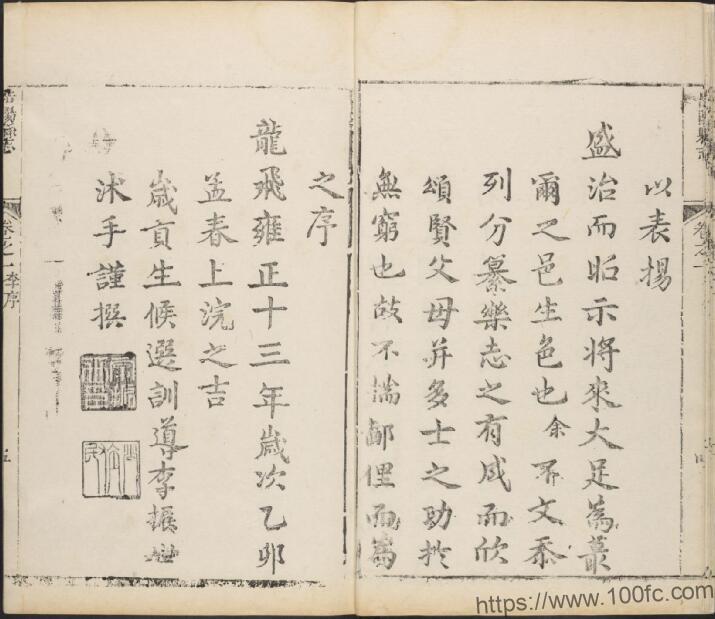 以表揚
盛治而昭示將來大足為叢
爾之邑生色也余不文忝
列分纂樂志之有成而欣
頌賢父母并多士之助於
無窮也故不揣鄙俚而為
之序
龍飛雍正十三年歲次乙卯
孟春上浣之吉
歲貢生候選訓導李振世
沐手謹撰
卷之一 李序
五
卷之一
四
https://www.100fc.com